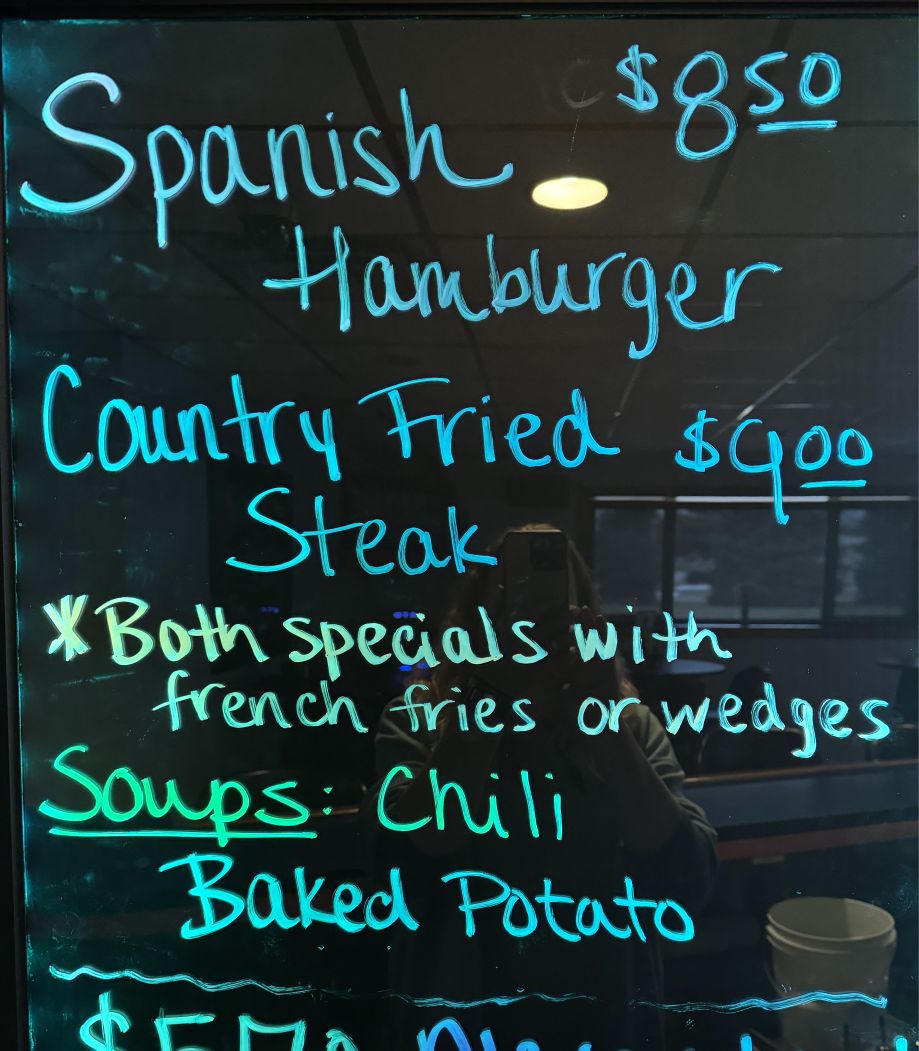 Spanish $8 50
Hamburger
Country Fried $9 00
Steak
*Both specials with
french fries or wedges
Soups: Chili
Baked Potato